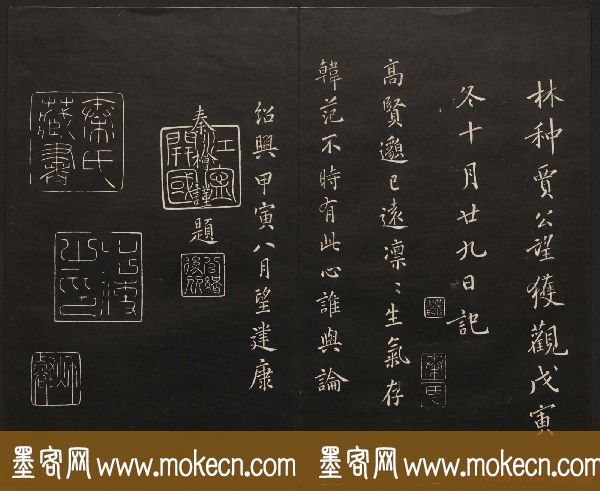 林种賈公望獲觀戊寅
冬十月廿九日記
高賢邈已遠凛〻生氣存
韓范不時有此心誰與論
紹興甲寅八月望建康
秦檜謹題
江寧開國
秦氏藏書
秦氏
墨客网 www.mokecn.com 墨客网 www.mokecn.com